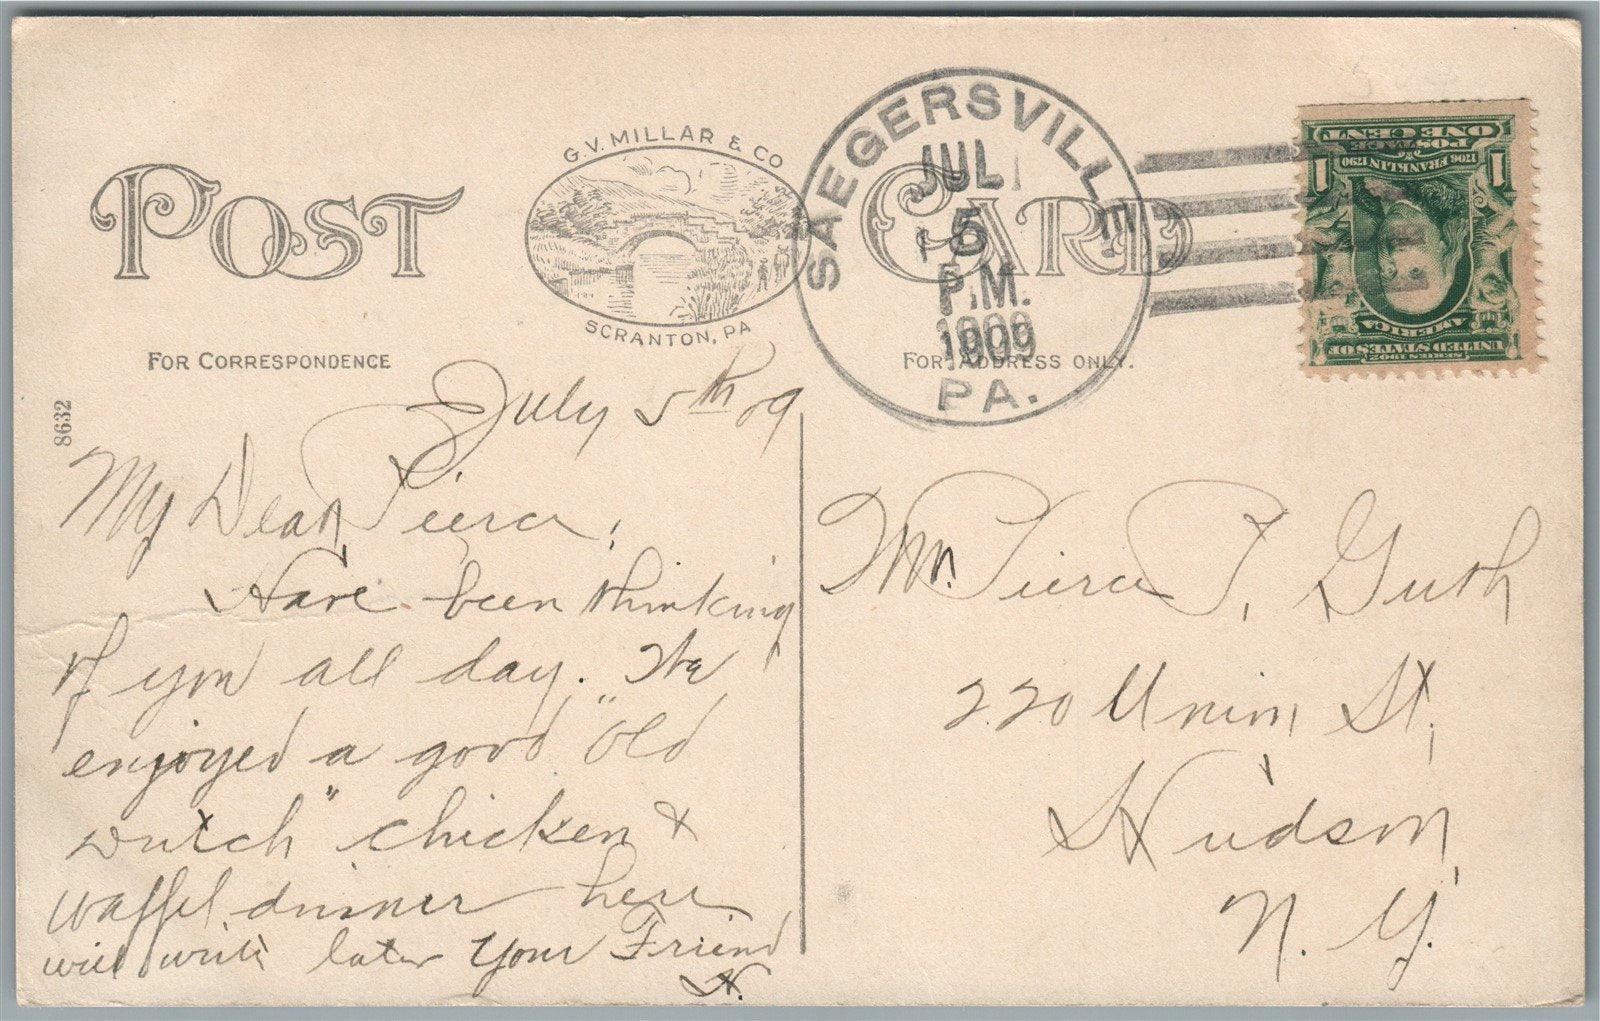 POST CARD
G.V. MILLAR & CO
SCRANTON, PA
FOR CORRESPONDENCE
FOR ADDRESS ONLY.
8632
SAEGERSVILLE
JUL
5
P.M.
1909
PA.
ONE CENT
POSTAGE
1706 FRANKLIN 1790
1 1
UNITED STATES OF
AMERICA
SERIES 1902
July 5th 09
My Dear Pierce,
Have been thinking
of you all day. We
enjoyed a good "old
Dutch" chicken &
waffel dinner here
will write later Your Friend
H.
Mr. Pierce P. Guth
220 Union St,
Hudson,
N. Y.